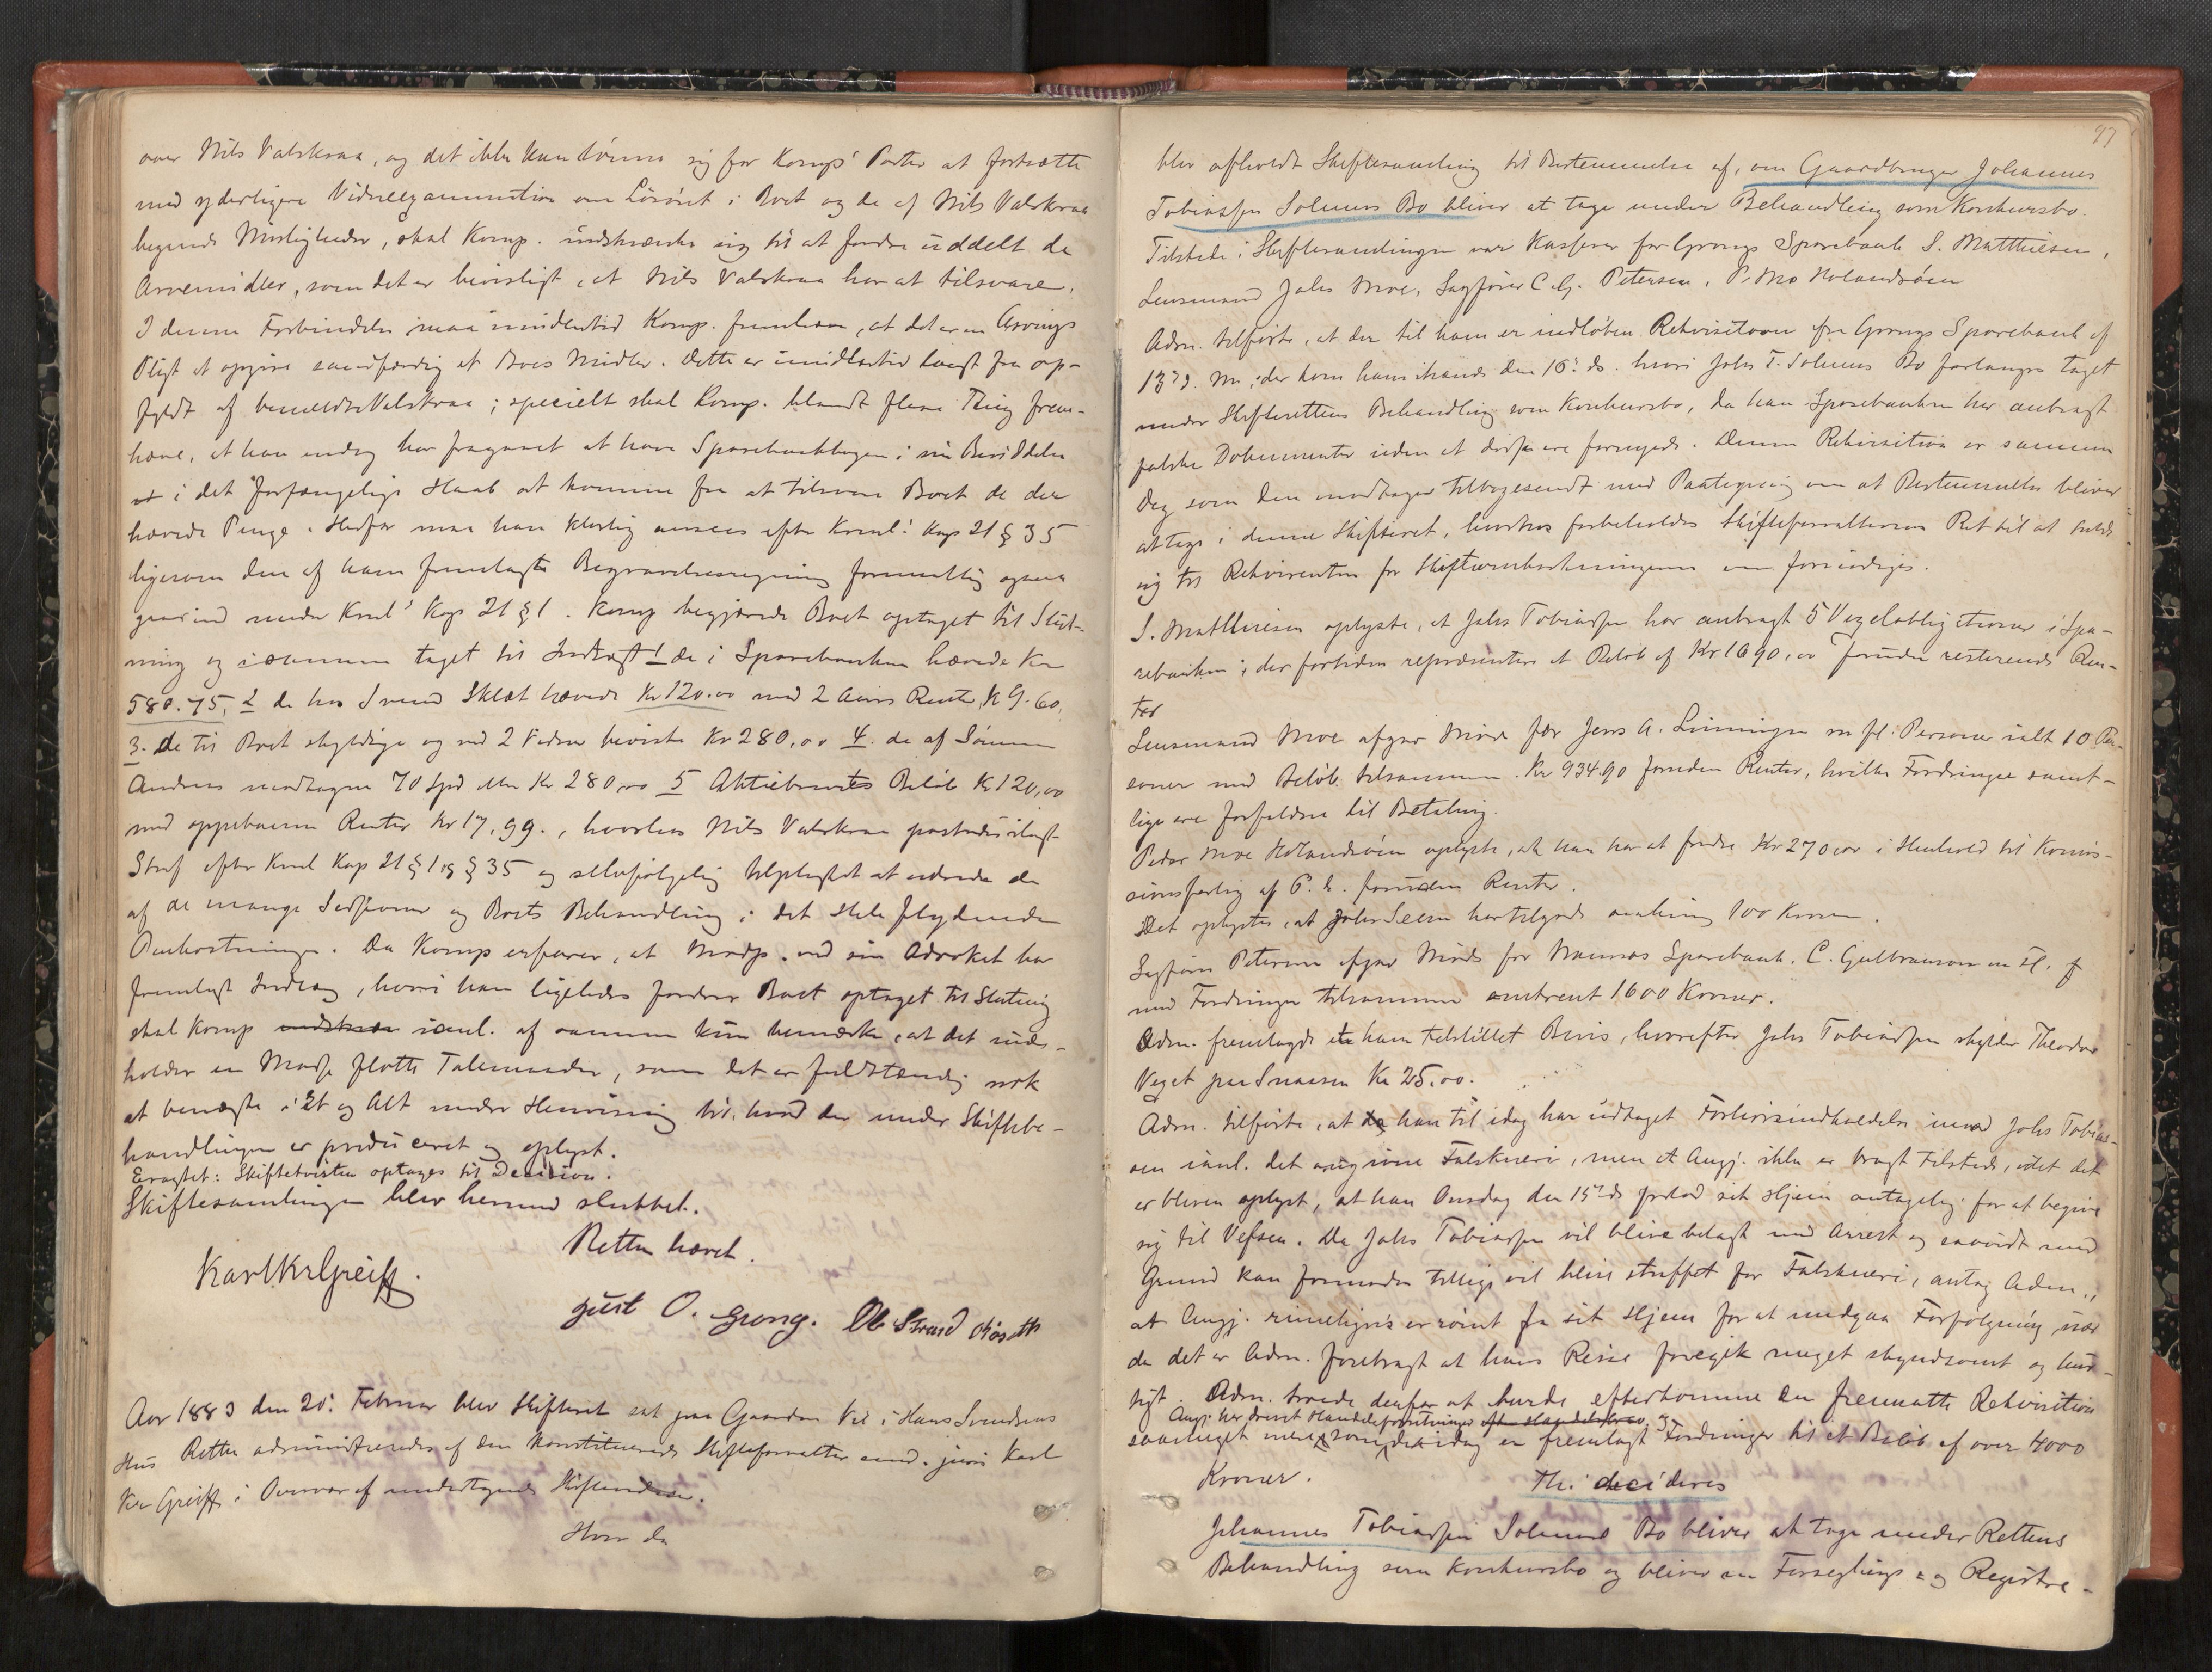 over Nils Valskraa, og det ikke kan lønne sig for Komp' Parter at fortsætte
med yderligere Vidneexamination om Løsøret i Boet og de af Nils Valskraa
begaaede Misligheder, skal Komp. indskrænke sig til at fordre uddelt de
Arvemidler, som det er bevisligt, at Nils Valskraa har at tilsvare.
I denne Forbindelse maa imidlertid Komp. fremhæve, at det er en Arvings
Pligt at opgive sandfærdig et Boes Midler. Dette er imidlertid langt fra op-
fyldt af bemeldte Valskraa; specielt skal Komp. blandt flere Ting frem-
hæve, at han endog har fragaaet at have Sparebankbogen i sin Besiddelse
i det forfængelige Haab at komme fra at tilsvare Boet de der
hævede Penge. Herfor maa han klarlig ansees efter Kriml: Kap 21 § 35
ligesom den af ham fremlagte Begravelsesregning formentlig ogsaa
gaar ind under Kriml' Kap 21 § 1. Komp begjærede Boet optaget til Slut-
ning og i samme taget til Indtægt 1 de i Sparebanken hævede Kr
580.75, 2 de hos Svend Sklæt hævede Kr 120.00 med 2 Aars Rente, K 9.60,
3. de til Boet skyldige og ved 2 Vidner beviste Kr 280,00 4. de af Sønnen
Andreas modtagne 70 Spd eller Kr 280,00 5 Aktiebrevets Beløb Kr 120,00
med oppebaarne Renter Kr 17,99., hvorhos Nils Valskraa paastodes ilagt
Straf efter Kriml Kap 21 § 1 og § 35 og selvfølgelig tilpligtet at udrede de
af de mange Sessioner og Boets Behandling i det Hele flydende
Omkostninger. Da Komp erfarer, at Modp. ved sin Advokat har
fremlagt Indlæg, hvori han ligeledes fordrer Boet optaget til Slutning
skal Komp indskræn ianl. af samme kun bemærke, at det inde-
holder en Masse flotte Talemaader, som det er fuldstændig nok
at benægte i Et og Alt under Henvisning til, hvad der under Skiftebe-
handlingen er produceret og oplyst.
Eragtet: Skiftetvisten optages til Decision.
Skiftesamlingen blev hermed sluttet.
Retten hævet.
Karl Kr Greiff.
Just O. Grong. Ole Strand
Aar 1883 den 20: Februar blev Skifteret sat paa Gaarden Vie i Hans Svendsens
Hus Retten administreredes af den konstituerede Skifteforvalter cand. juris Karl
Kr Greiff i Overvær af undertegnede Skiftevidner.
Hvor da
97
blev afholdt Skiftesamling til Bestemmelse af, om Gaardbruger Johannes
Tobiassen Solums Bo bliver at tage under Behandling som Konkursbo.
Tilstede i Skiftesamlingen var Kasserer for Grongs Sparebank S. Matthiesen,
Lensmand Johs Moe, Sagfører C. G. Petersen, P. Mo Holandsøien
Adm. tilførte, at der til ham er indløben Rekvisition fra Grongs Sparebank af
13de d. M., der kom ham ihænde den 16: ds. hvori Johs T. Solums Bo forlanges taget
under Skifterettens Behandling som Konkursbo, da han i Sparebanken har anbragt
falske Dokumenter uden at disse ere fornyede. Denne Rekvisition er samme
Dag som den modtages tilbagesendt med Paategning om at Bestemmelse bliver
at tage i denne Skifteret, hvorhos forbeholdes Skifteforvalteren Ret til at holde
sig til Rekvirenten for Skifteomkostningerne om fornødiges.
S. Matthiesen oplyste, at Johs Tobiassen har anbragt 5 Vexelobligationer i Spa-
rebanken, der fortiden repræsentere et Beløb af Kr 1690,00 foruden resterende Ren-
ter
Lensmand Moe afgav Møde for Jens A. Linningen m fl: Personer ialt 10 Per-
soner med Beløb tilsammen Kr 934.90 foruden Renter, hvilke Fordringer samt-
lige ere forfaldne til Betaling.
Peder Moe Holandsøien oplyste, at han har at fordre Kr 270,00 i Henhold til Komis-
sionsforlig af foruden Renter.
Det oplystes, at Johs Seem har tilgode omkring 100 Kroner.
Sagfører Petersen afgav Møde for Namsos Sparebank, C. Gulbransen m Fl. 
med Fordringer tilsammen omtrent 1600 Kroner.
Adm. fremlagde et ham tilstillet Bevis, hvorefter Johs Tobiassen skylder Theodor
Veget paa Snaasen Kr 25,00.
Adm. tilførte, at han til idag har udtaget Forhørsindkaldelse imod Johs Tobias-
sen ianl. det angivne Falskneri, men at Angj. ikke er bragt tilstede, idet det
er bleven oplyst, at han Onsdag den 15de ds forlod sit Hjem antagelig for at begive
sig til Vefsen. Da Johs Tobiassen vil blive belagt med Arrest og saavidt med
Grund kan formodes tillige vil blive straffet for Falskneri, antog Adm.,
at Angj. rimeligvis er rømt fra sit Hjem for at undgaa Forfølgning især
da det er Adm. forebragt at hans Reise foregik meget skyndsomt og hur-
tigt. Adm. troede derfor at burde efterkomme den fremsatte Rekvisition
Angj. har drevet Handelsforretninger efter Handelsbrev, og
saameget mere som der idag er fremlagt Fordringer til et Beløb af over 4000
Kroner.
Thi decideres
Johannes Tobiassen Solums Bo bliver at tage under Rettens
Behandling som Konkursbo og bliver en Forseglings- og Registre-